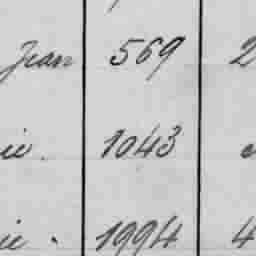 Jean 569 2
ie. 1043
ie. 1994 4